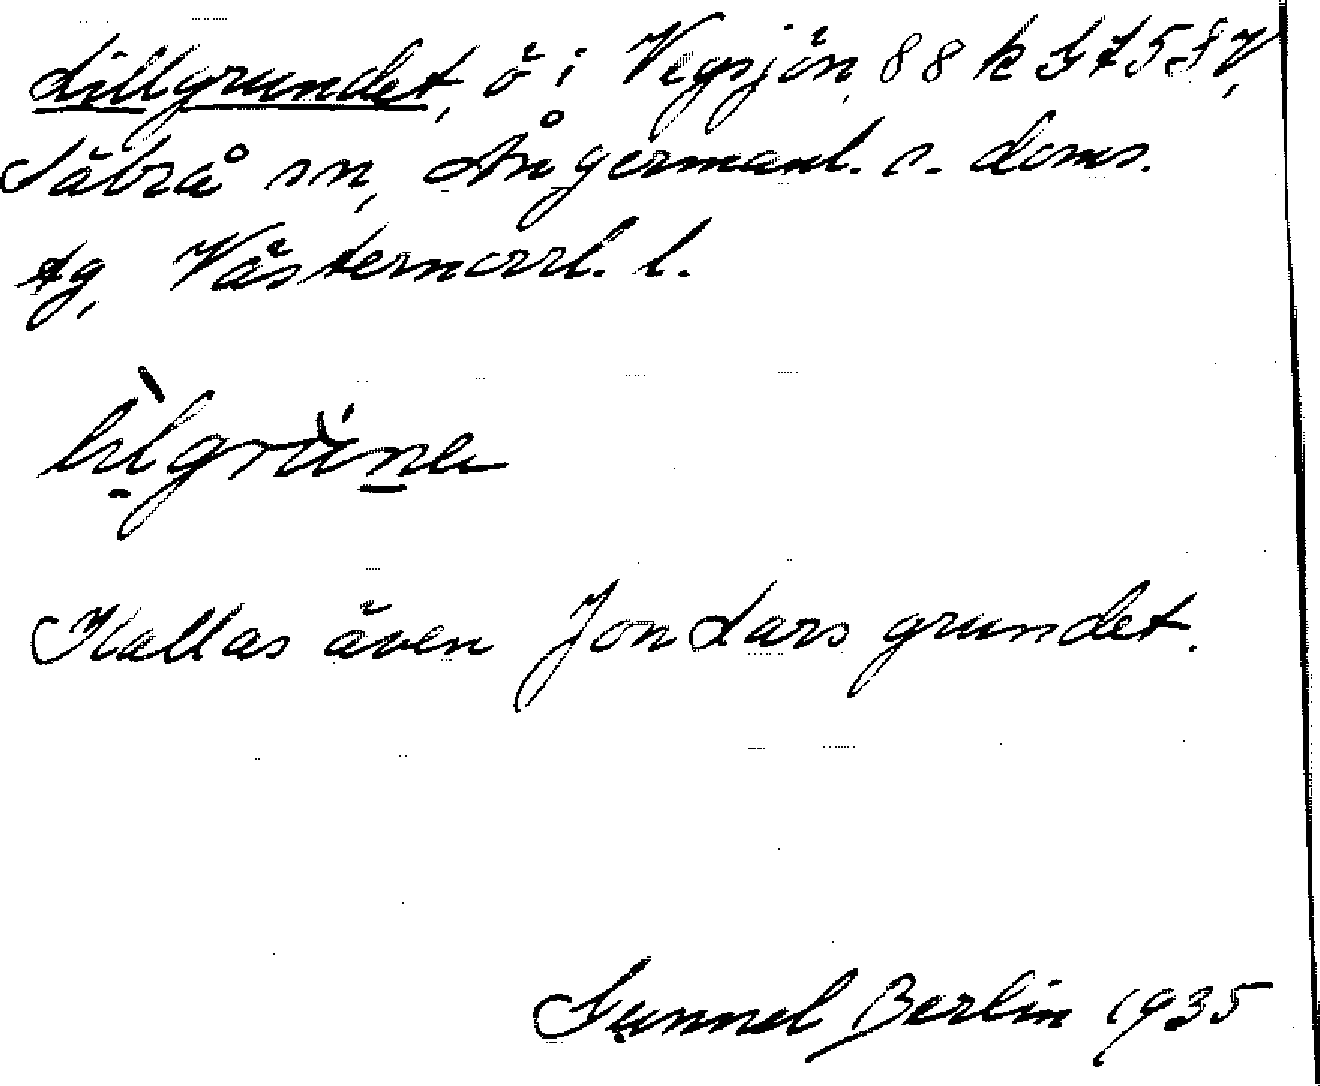 Lillgrundet, ö i Vegsjön, 88 k
Säbrå sn, Ångermanl. s. doms.
tg, Västernorrl. l.
Kallas även Jon Lars grundet.
Gunnel Berlin 1935